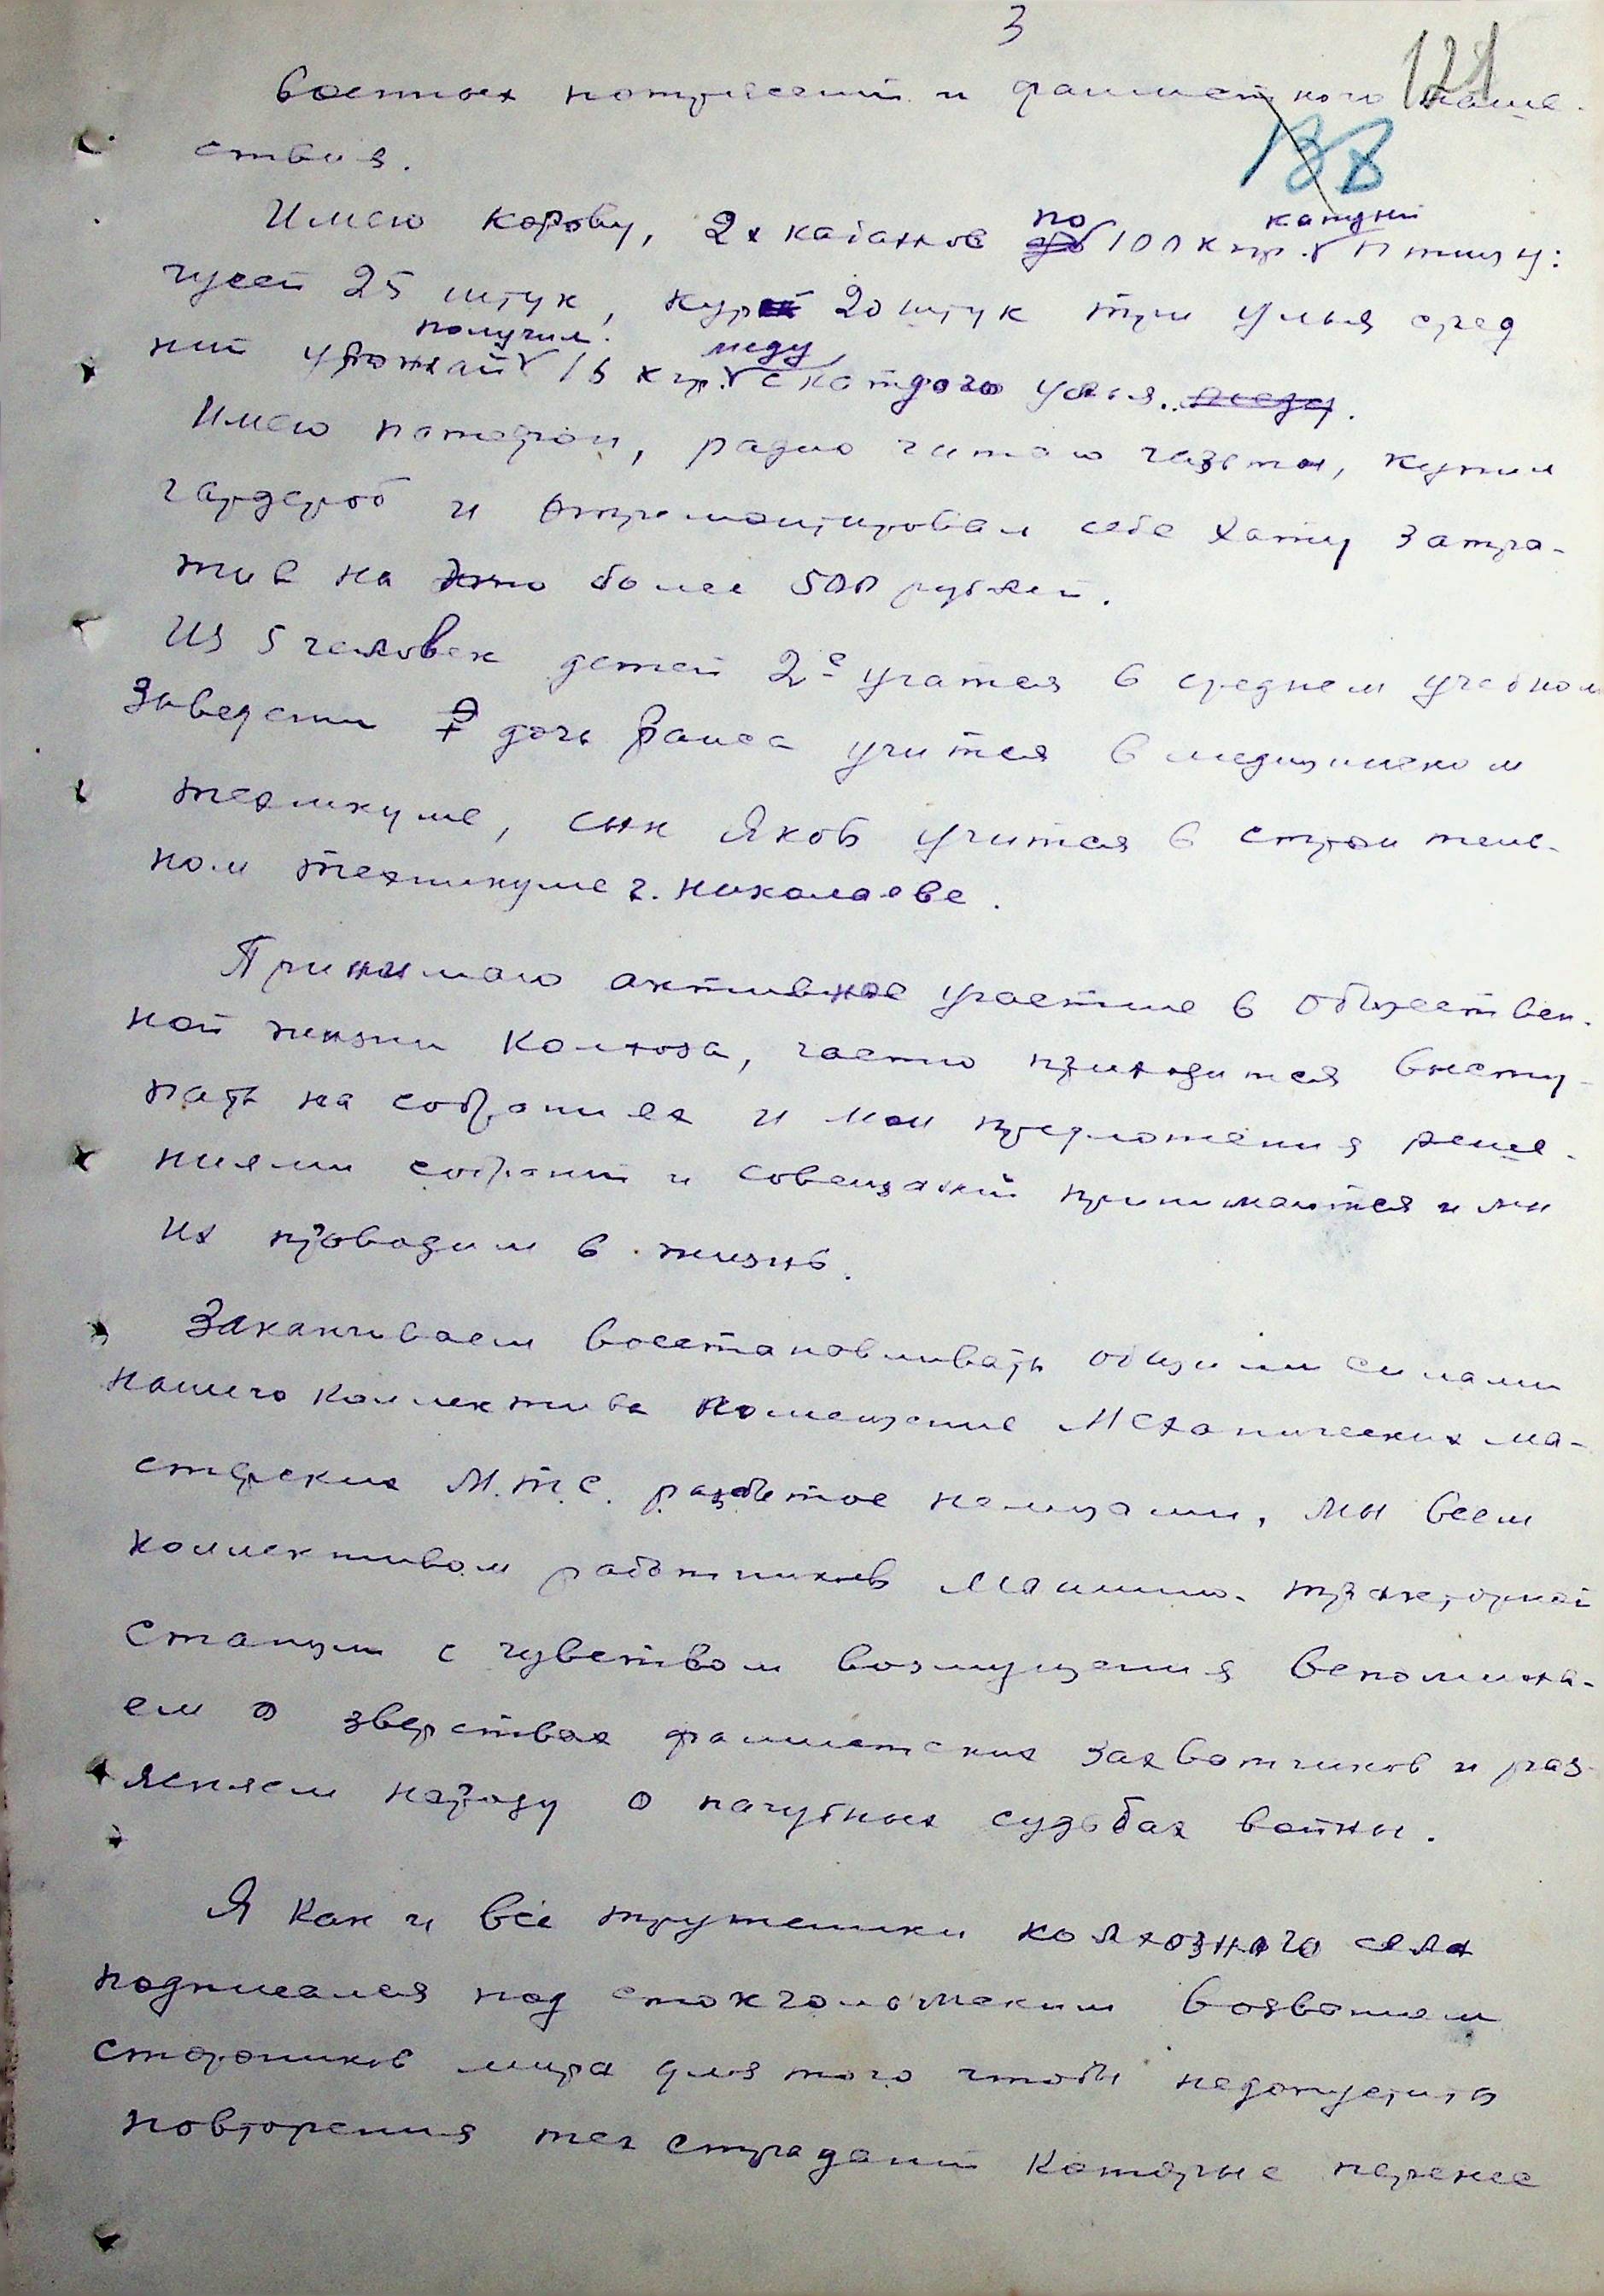 3
121
военных потрясений и фашистского наше-
ствия.
Имею корову, 2х кабанов по 100 кгр. каждый птицу:
гусей 25 штук, кур 20 штук три улья сред
ний урожай получил 15 кгр. меду с каждого улья.
Имею патефон, радио читаю газеты, купил
гардероб и отремонтировал себе хату затра-
тив на это более 500 рублей.
Из 5 человек детей 2е учатся в среднем учебном
заведении дочь Раиса учится в медицинском
техникуме, сын Яков учится в строитель-
ном техникуме г. Николаеве.
Принимаю активное участие в обществен-
ной жизни колхоза, часто приходится высту-
пать на собраниях и мои предложения реше-
ниями собраний и совещаний принимаются и мы
их проводим в жизнь.
Заканчиваем восстановливать общими силами
нашего коллектива помещение механических ма-
стерских М.Т.С. разбитое немцами, мы всем
коллективом работников машино-тракторной
станции с чувством возмущения вспомина-
ем о зверствах фашистских захватчиков и раз-
ясняем народу о пагубных судьбах войны.
Я как и все труженики колхозного села
подписался под стокгольмским воззванием
сторонников мира для того чтобы недопустить
повторения тех страданий которые перенес